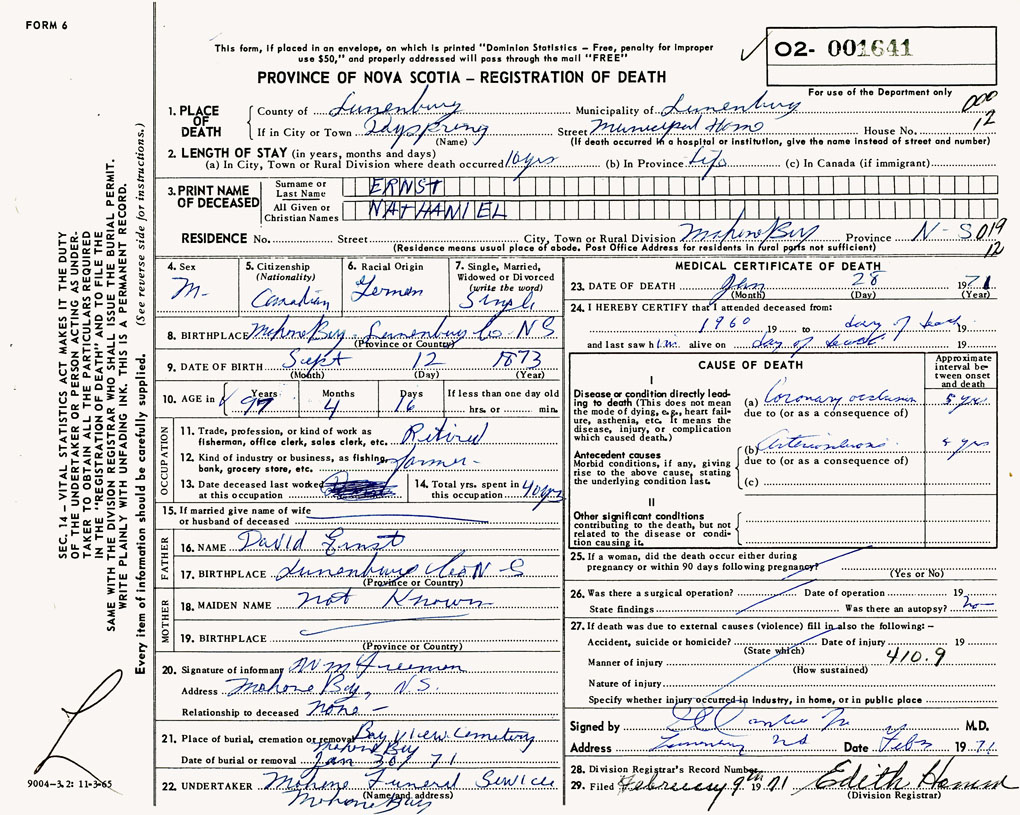 FORM 6
This form, if placed in an envelope, on which is printed "Dominion Statistics – Free, penalty for improper
use $50," and properly addressed will pass through the mail "FREE"
PROVINCE OF NOVA SCOTIA – REGISTRATION OF DEATH
02- 001641
For use of the Department only
000
12
1. PLACE OF DEATH
County of Lunenburg Municipality of Lunenburg
If in City or Town Dayspring Street Municipal Home House No.
(Name) (If death occurred in a hospital or institution, give the name instead of street and number)
2. LENGTH OF STAY (in years, months and days)
(a) In City, Town or Rural Division where death occurred 10 yrs (b) In Province Life (c) In Canada (if immigrant)
3. PRINT NAME OF DECEASED
Surname or Last Name ERNST
All Given or Christian Names NATHANIEL
RESIDENCE No. Street City, Town or Rural Division Mahone Bay Province N-S 019
(Residence means usual place of abode. Post Office Address for residents in rural parts not sufficient) 12
4. Sex M-
5. Citizenship (Nationality) Canadian
6. Racial Origin German
7. Single, Married, Widowed or Divorced (write the word) Single
8. BIRTHPLACE Mahone Bay Lunenburg Co. NS
(Province or Country)
9. DATE OF BIRTH Sept 12 1873
(Month) (Day) (Year)
10. AGE in Years 97 Months 4 Days 16 If less than one day old
hrs. or min.
OCCUPATION
11. Trade, profession, or kind of work as
fisherman, office clerk, sales clerk, etc. Retired
12. Kind of industry or business, as fishing,
bank, grocery store, etc. farmer-
13. Date deceased last worked
at this occupation
14. Total yrs. spent in
this occupation 40 yrs
15. If married give name of wife
or husband of deceased
FATHER
16. NAME David Ernst
17. BIRTHPLACE Lunenburg Co N S
(Province or Country)
MOTHER
18. MAIDEN NAME not Known
19. BIRTHPLACE
(Province or Country)
20. Signature of informant Wm Freeman
Address Mahone Bay, N.S.
Relationship to deceased none-
21. Place of burial, cremation or removal Bay View Cemetery
Mahone Bay
Date of burial or removal Jan 30/71
22. UNDERTAKER Mahone Funeral Service
(Name and address)
Mahone Bay
MEDICAL CERTIFICATE OF DEATH
23. DATE OF DEATH Jan 28 1971
(Month) (Day) (Year)
24. I HEREBY CERTIFY that I attended deceased from:
1960 19 to day of death 19
and last saw him alive on day of death 19
CAUSE OF DEATH
Approximate interval between onset and death
I
Disease or condition directly leading to death (This does not mean the mode of dying, e.g., heart failure, asthenia, etc. It means the disease, injury, or complication which caused death.)
(a) Coronary occlusion 5 yrs
due to (or as a consequence of)
Antecedent causes
Morbid conditions, if any, giving rise to the above cause, stating the underlying condition last.
(b) yrs
due to (or as a consequence of)
(c)
II
Other significant conditions
contributing to the death, but not related to the disease or condition causing it.
25. If a woman, did the death occur either during
pregnancy or within 90 days following pregnancy?
(Yes or No)
26. Was there a surgical operation? Date of operation 19
State findings Was there an autopsy? no
27. If death was due to external causes (violence) fill in also the following:–
Accident, suicide or homicide? Date of injury 19
(State which)
Manner of injury 410.9
(How sustained)
Nature of injury
Specify whether injury occurred in industry, in home, or in public place
Signed by M.D.
Address Date Feb 1971
28. Division Registrar's Record Number
29. Filed February 9th 1971 Edith Hamm
(Division Registrar)
SEC. 14 – VITAL STATISTICS ACT MAKES IT THE DUTY
OF THE UNDERTAKER OR PERSON ACTING AS UNDER-
TAKER TO OBTAIN ALL THE PARTICULARS REQUIRED
IN THE "REGISTRATION OF DEATH" AND FILE THE
SAME WITH THE DIVISION REGISTRAR WHO SHALL ISSUE THE BURIAL PERMIT.
WRITE PLAINLY WITH UNFADING INK. THIS IS A PERMANENT RECORD.
Every item of information should be carefully supplied. (See reverse side for instructions.)
L
9004-3.2: 11-3-65